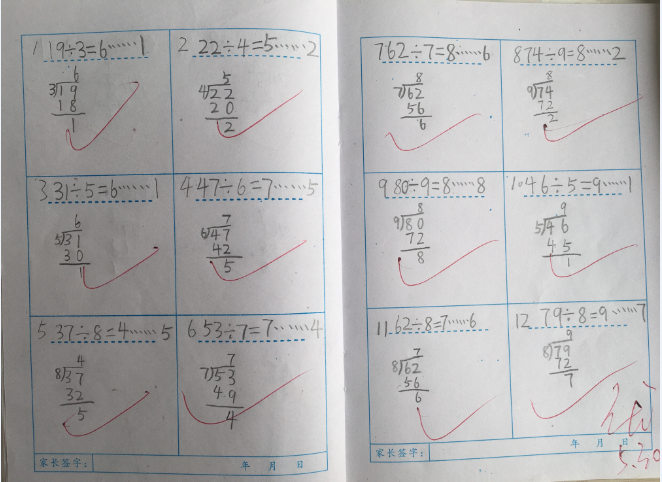 1 19÷3=6……1
6
3)19
18
1
2 22÷4=5……2
5
4)22
20
2
3 31÷5=6……1
6
5)31
30
1
4 47÷6=7……5
7
6)47
42
5
5 37÷8=4……5
4
8)37
32
5
6 53÷7=7……4
7
7)53
49
4
家长签字: 年 月 日
7 62÷7=8……6
8
7)62
56
6
8 74÷9=8……2
8
9)74
72
2
9 80÷9=8……8
8
9)80
72
8
10 46÷5=9……1
9
5)46
45
1
11 62÷8=7……6
7
8)62
56
6
12 79÷8=9……7
9
8)79
72
7
家长签字: 年 月 日
5.30